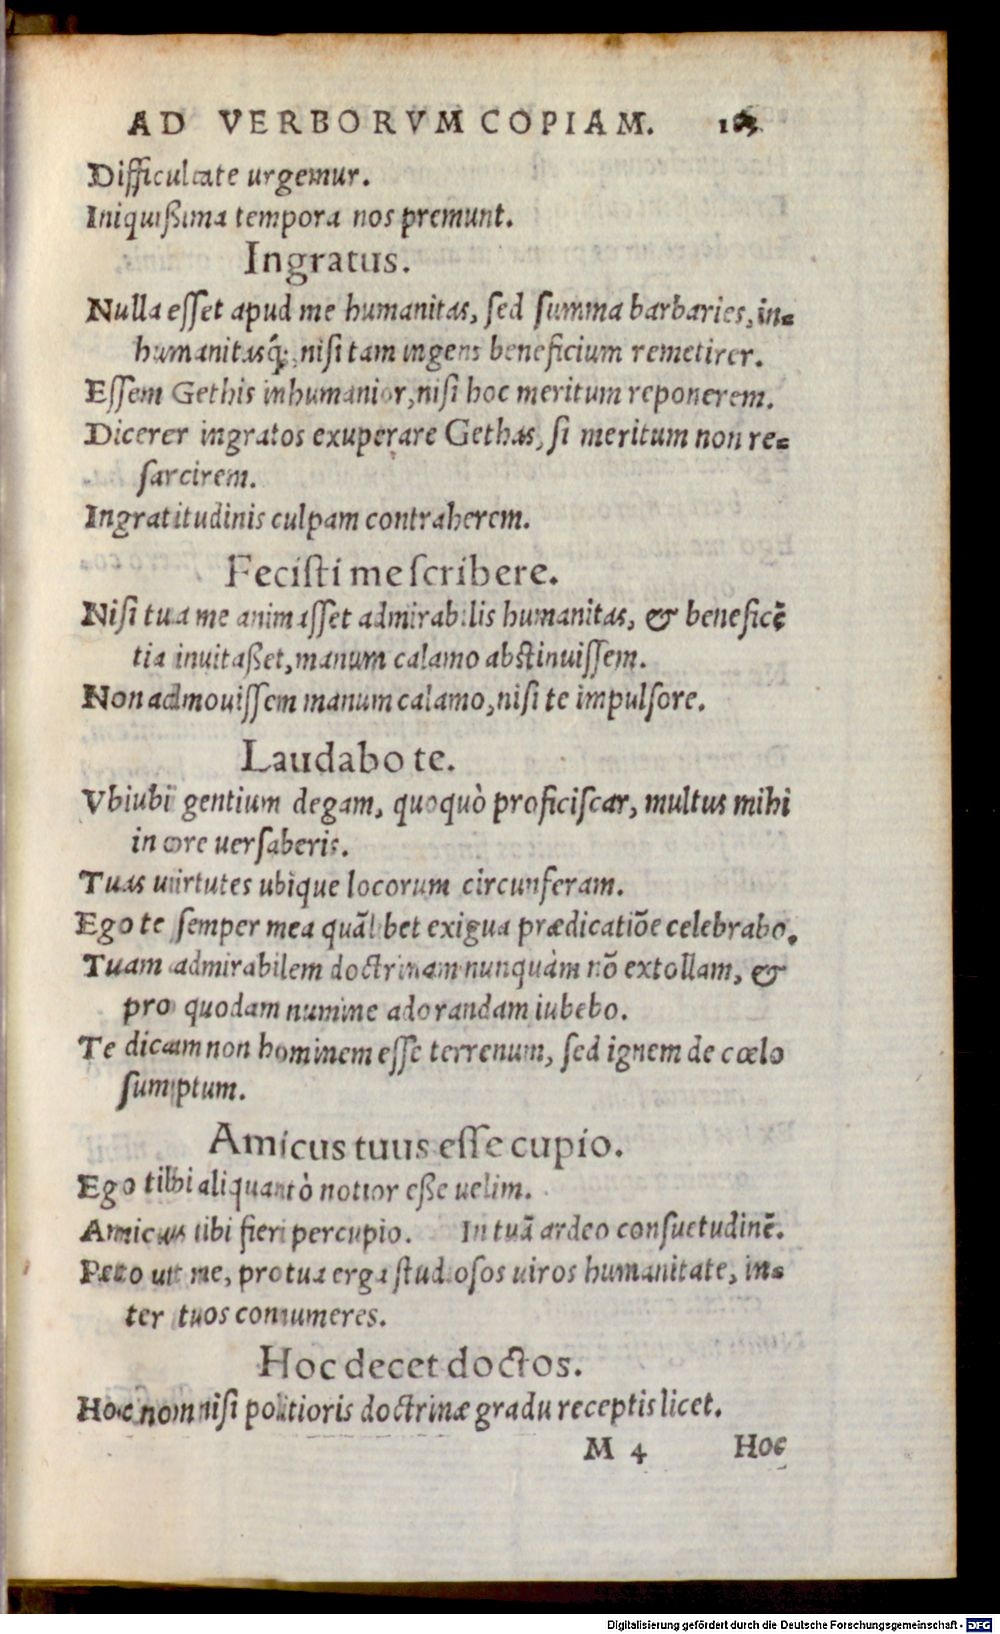 AD VERBORVM COPIAM.
Difficultate urgemur.
Iniquißima tempora nos premunt.
Ingratus.
Nulla eſſet apud me humanitas, ſed ſumma barbaries, in-
humanitasq́;, niſi tam ingens beneficium remetirer.
Eſſem Gethis inhumanior, niſi hoc meritum reponerem.
Dicerer ingratos exuperare Gethas, ſi meritum non re-
ſarcirem.
Ingratitudinis culpam contraherem.
Feciſti me ſcribere.
Niſi tua me animaſſet admirabilis humanitas, & beneficẽ
tia inuitaßet, manum calamo abstinuiſſem.
Non admouiſſem manum calamo, niſi te impulſore.
Laudabo te.
Vbiubi gentium degam, quoquò proficiſcar, multus mihi
in ore uerſaberis.
Tuas uirtutes ubique locorum circunferam.
Ego te ſemper mea quãlibet exigua prædicatiõe celebrabo.
Tuam admirabilem doctrinam nunquàm nõ extollam, &
pro quodam numine adorandam iubebo.
Te dicam non hominem eſſe terrenum, ſed ignem de cœlo
ſumptum.
Amicus tuus eſſe cupio.
Ego tibi aliquantò notior eße uelim.
Amicus tibi fieri percupio. In tuã ardeo conſuetudinẽ.
Peto ut me, pro tua erga ſtudioſos uiros humanitate, in-
ter tuos connumeres.
Hoc decet doctos.
Hoc non niſi politioris doctrinæ gradu receptis licet.
M 4 Hoc
Digitalisierung gefördert durch die Deutsche Forschungsgemeinschaft - DFG